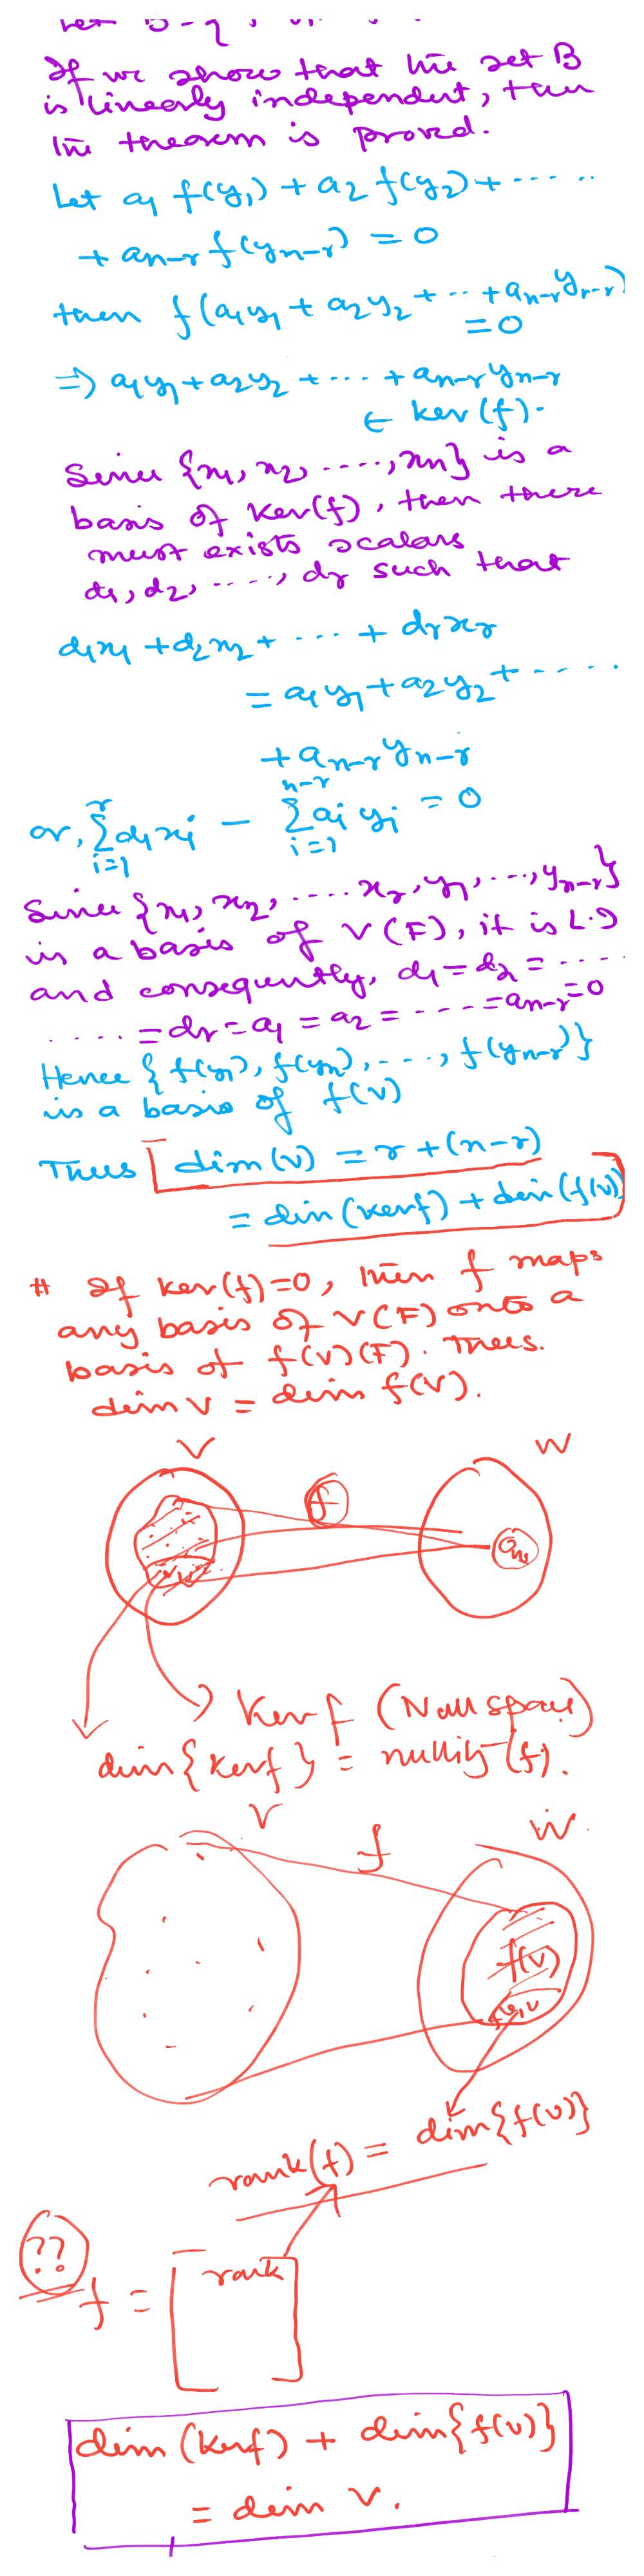 If we show that the set B
is linearly independent, then
the theorem is proved.
Let a₁ f(y₁) + a₂ f(y₂) + ......
+ aₙ₋ᵣ f(yₙ₋ᵣ) = 0
then f(a₁y₁ + a₂y₂ + ... + aₙ₋ᵣyₙ₋ᵣ)
= 0
⇒ a₁y₁ + a₂y₂ + .... + aₙ₋ᵣyₙ₋ᵣ
∈ ker(f).
Since {x₁, x₂, ...., xₙ} is a
basis of Ker(f), then there
must exists scalars
d₁, d₂, ...., dᵣ such that
d₁x₁ + d₂x₂ + ... + dᵣxᵣ
= a₁y₁ + a₂y₂ + .....
+ aₙ₋ᵣyₙ₋ᵣ
or, ∑ᵢ₌₁ʳ dᵢxᵢ − ∑ᵢ₌₁ⁿ⁻ʳ aᵢyᵢ = 0
Since {x₁, x₂, .... xᵣ, y₁, ..., yₙ₋ᵣ}
is a basis of V(F), it is L.I
and consequently, d₁ = d₂ = ....
.... = dᵣ = a₁ = a₂ = .... = aₙ₋ᵣ = 0
Hence {f(y₁), f(y₂), ..., f(yₙ₋ᵣ)}
is a basis of f(V)
Thus dim(V) = r + (n-r)
= dim(kerf) + dim(f(V))
# If ker(f)=0, then f maps
any basis of V(F) onto a
basis of f(V)(F). Thus.
dim V = dim f(V).
V W
f
0w
Ker f (Null space)
dim{kerf} = nullity(f).
V W
f
f(V)
rank(f) = dim{f(V)}
??
f = [rank]
dim (kerf) + dim{f(V)}
= dim V.